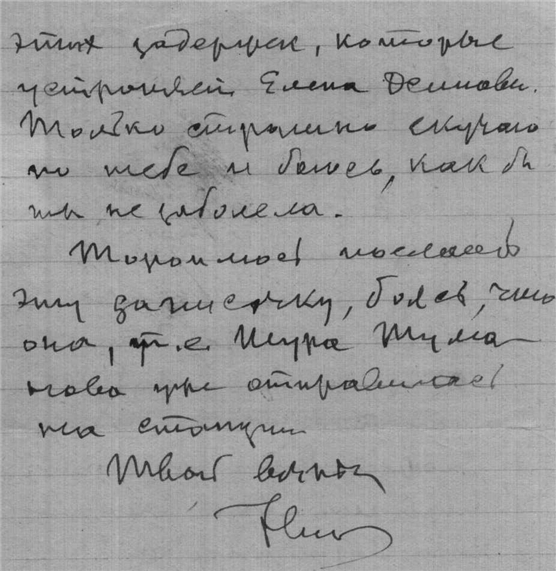 этих задержек, которые
устроила Елена
Только страшно скучаю
по тебе и боюсь, как бы
ты не заболела.
Тороплюсь послать
эту записочку, боясь, что
она, т.е. Шура Тума-
нова уже отправилась
на станцию
Твой